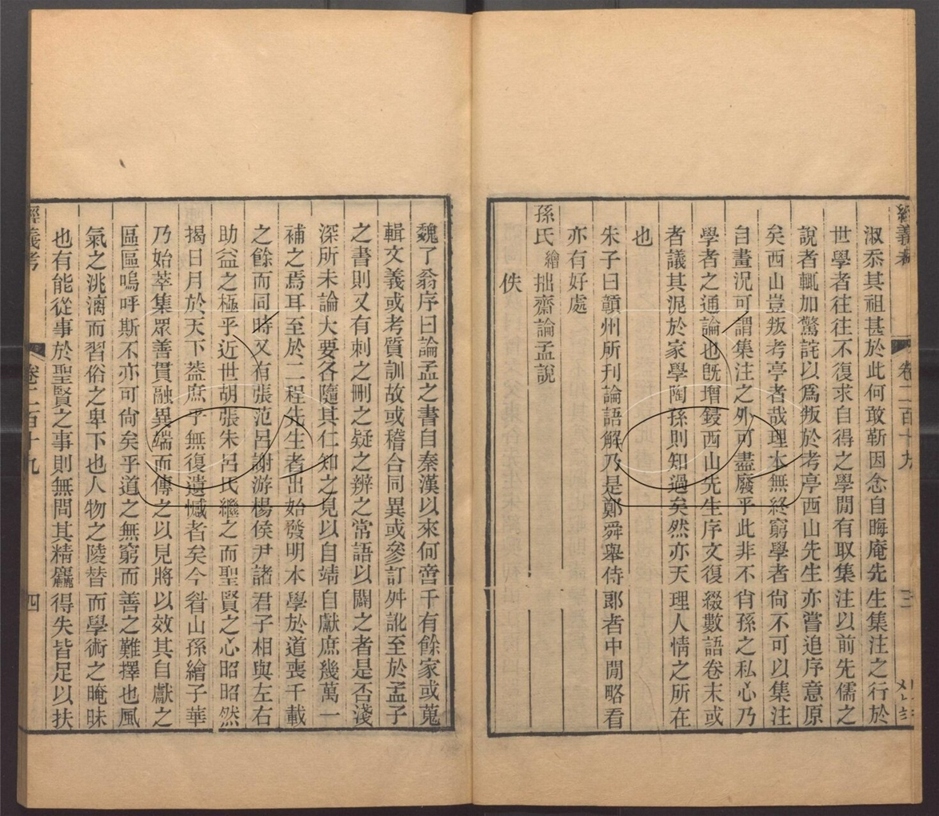 經義考 卷二百十九 三
淑忝其祖甚於此何敢靳因念自晦庵先生集注之行於
世學者往往不復求自得之學閒有取集注以前先儒之
說者輒加驚詫以爲叛於考亭西山先生亦嘗追序意原
矣西山豈叛考亭者哉理本無終窮學者尙不可以集注
自畫況可謂集注之外可盡廢乎此非不肖孫之私心乃
學者之通論也旣增鋟西山先生序文復綴數語卷末或
者議其泥於家學陶孫則知過矣然亦天理人情之所在
也
朱子曰贛州所刊論語解乃是鄭舜舉侍郞者中閒略看
亦有好處
孫氏繪拙齋論孟說
佚
魏了翁序曰論孟之書自秦漢以來何啻千有餘家或蒐
輯文義或考質訓故或稽合同異或參訂舛訛至於孟子
之書則又有刺之刪之疑之辨之常語以闢之者是否淺
深所未論大要各隨其仁知之見以自靖自獻庶幾萬一
補之焉耳至於二程先生者出始發明本學於道喪千載
之餘而同時又有張范呂謝游楊侯尹諸君子相與左右
助益之極乎近世胡張朱呂氏繼之而聖賢之心昭昭然
揭日月於天下葢庶乎無復遺憾者矣今眷山孫繪子華
乃始萃集眾善貫融異端而傳之以見將以效其自獻之
區區嗚呼斯不亦可尙矣乎道之無窮而善之難擇也風
氣之洮漓而習俗之卑下也人物之陵替而學術之晻昧
也有能從事於聖賢之事則無問其精麤得失皆足以扶
經義考 卷二百十九 四